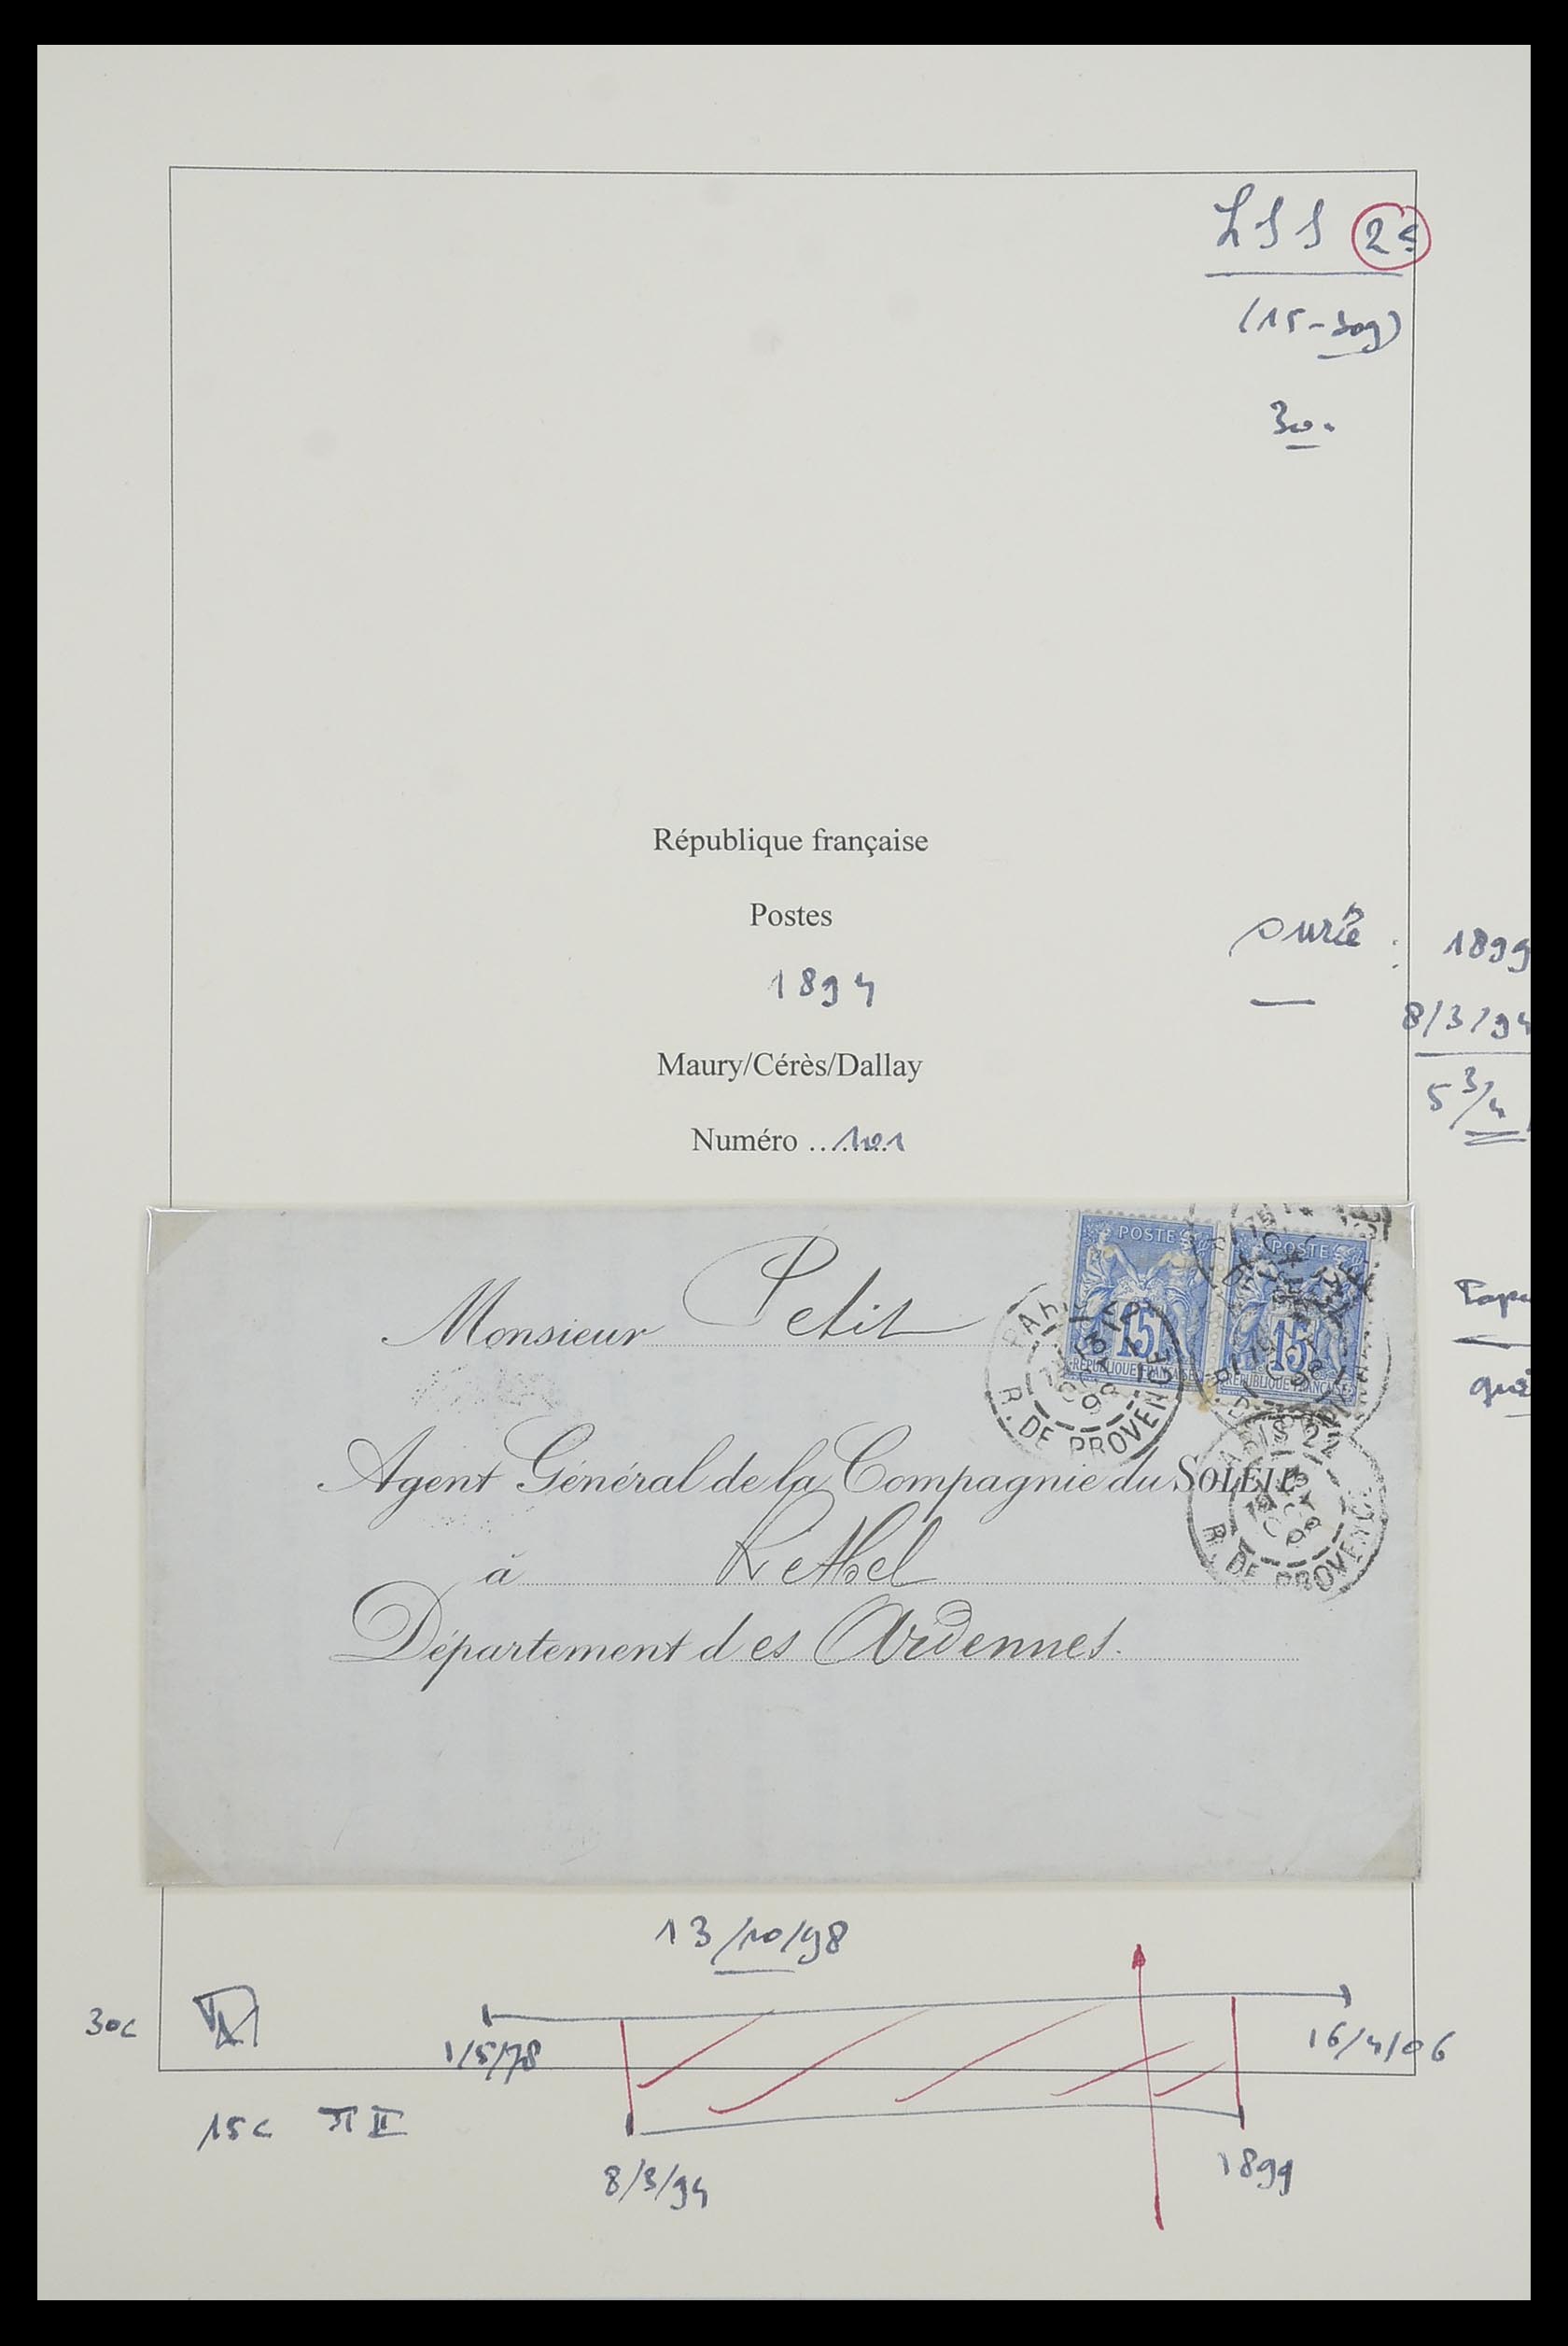 LSS 2e
(15-30g)
30.
République française
Postes
1894
Maury/Cérès/Dallay
Numéro ...101
Durée : 1899
8/3/94
5 3/4
POSTES POSTES
15 15
REPUBLIQUE FRANÇAISE REPUBLIQUE FRANÇAISE
PARIS 22
R. DE PROVENCE
OCT
98
Monsieur Petit
Agent Général de la Compagnie du SOLEIL
à Rethel
Département des Ardennes.
PARIS 22
13
OCT
98
R. DE PROVENCE
13/10/98
30c
1/5/78
16/4/06
15c II
8/3/94
1899